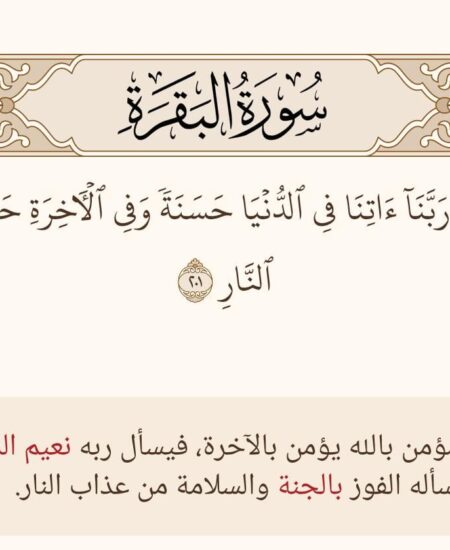 سُورَةُ البَقَرَةِ
رَبَّنَآ ءَاتِنَا فِي ٱلدُّنۡيَا حَسَنَةٗ وَفِي ٱلۡأٓخِرَةِ
ٱلنَّارِ ٢٠١
بالله يؤمن بالآخرة، فيسأل ربه نعيم
الفوز بالجنة والسلامة من عذاب النار.